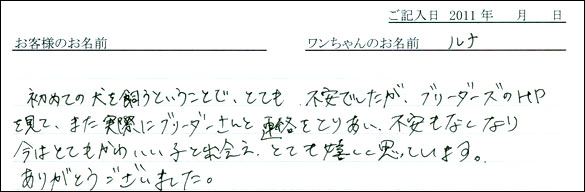 ご記入日 2011 年 月 日
お客様のお名前 ワンちゃんのお名前 ルナ
初めての犬を飼うということで、とても 不安でしたが、ブリーダーズのHP
を見て、また実際にブリーダーさんと連絡をとりあい、不安もなくなり
今はとてもかわいい子と出会え、とても嬉しく思っています。
ありがとうございました。